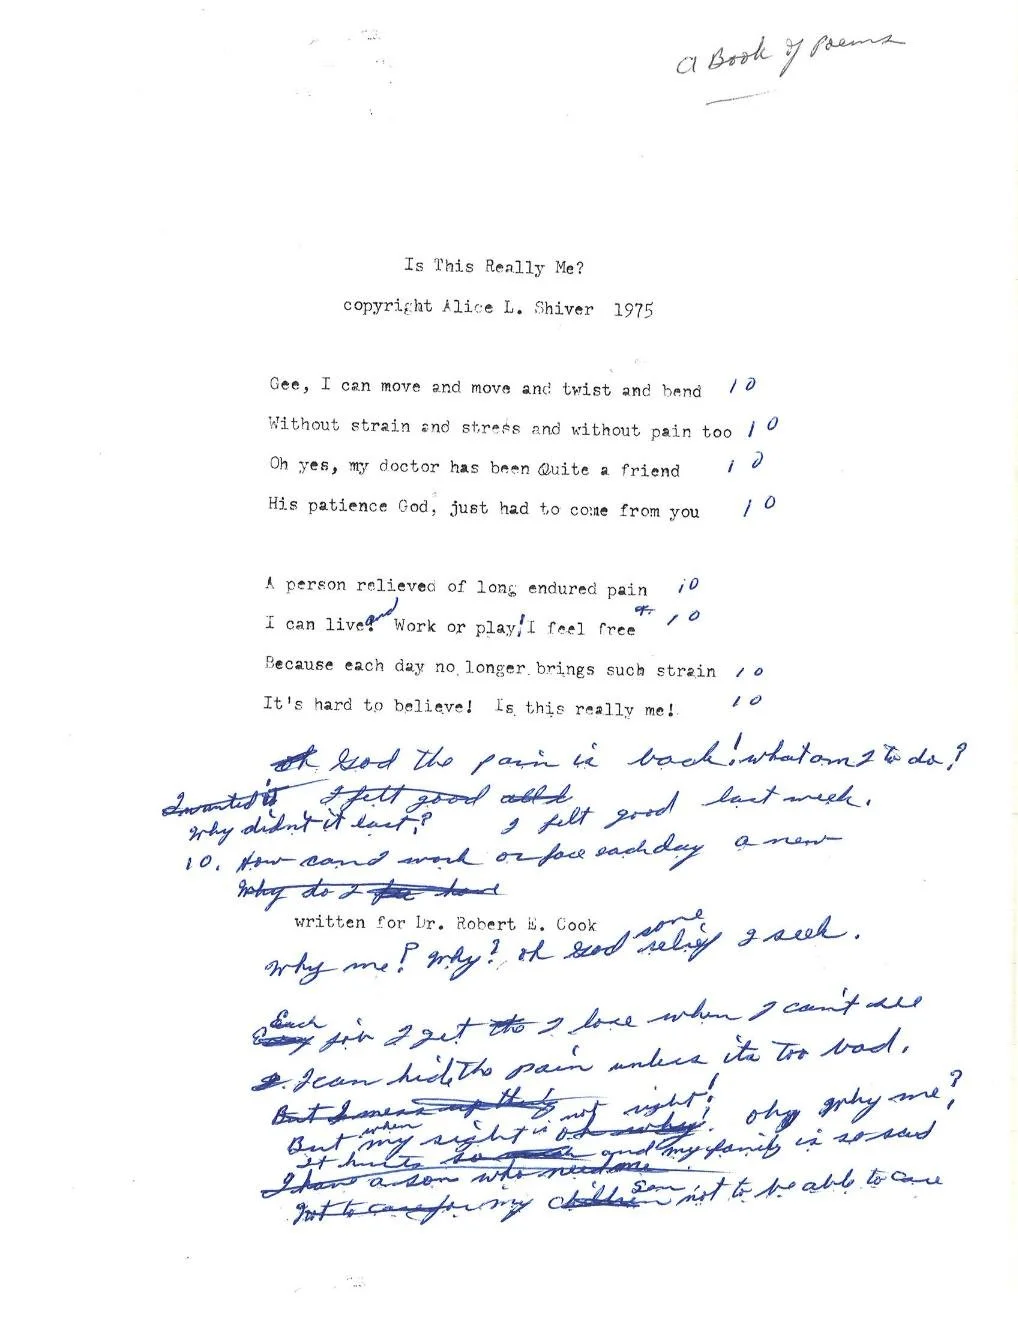 A Book of Poems
Is This Really Me?
copyright Alice L. Shiver 1975
Gee, I can move and move and twist and bend 10
Without strain and stress and without pain too 10
Oh yes, my doctor has been Quite a friend 10
His patience God, just had to come from you 10
A person relieved of long endured pain 10
and
I can live? Work or play! I feel free 10
Because each day no longer brings such strain 10
It's hard to believe! Is this really me! 10
oh God the pain is back! what am I to do?
I wanted it I felt good all
Why didn't it last? I felt good last week.
10. How can I work or face each day a new
Why do I have
written for Dr. Robert E. Cook
some
Why me? Why? oh God relief I seek.
Each
Every job I get the I lose when I can't see
I can hide the pain unless its too bad.
But I mess up they not right!
when
But my sight is oh why! ohy Why me?
It hurts so and my family is so sad
I have a son who need me
son
Not to care for my children not to be able to care